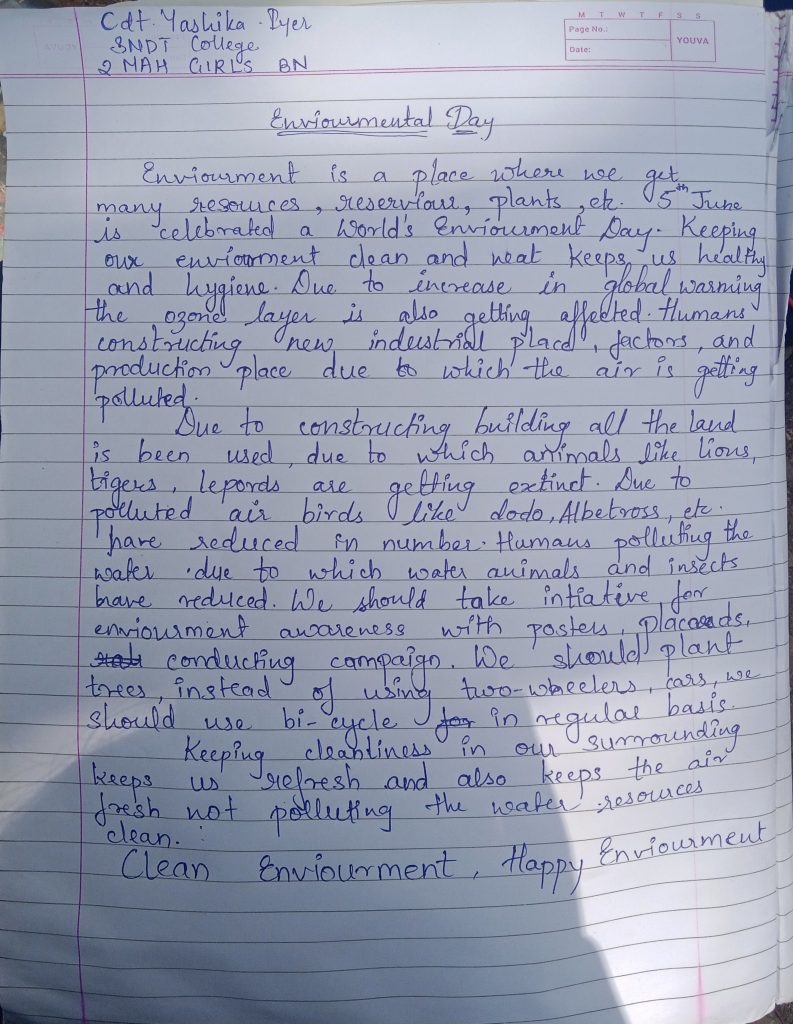 Cdt. Yashika Iyer
SNDT College
2 MAH GIRLS BN
M T W T F S S
Page No.:
Date:
YOUVA
Enviourmental Day
Enviourment is a place where we get
many resources, reserviour, plants, etc. 5th June
is celebrated a World's Enviourment Day. Keeping
our enviorment clean and neat keeps us healthy
and hygiene. Due to increase in global warming
the ozone layer is also getting affected. Humans
constructing new industrial place, factors, and
production place due to which the air is getting
polluted.
Due to constructing building all the land
is been used, due to which animals like lions,
tigers, lepords are getting extinct. Due to
polluted air birds like dodo, Albetross, etc.
have reduced in number. Humans polluting the
water due to which water animals and insects
have reduced. We should take intiative for
enviourment awareness with posters, placards,
conducting campaign. We should plant
trees, instead of using two-wheelers, cars, we
should use bi-cycle for in regular basis.
Keeping cleanliness in our surrounding
keeps us refresh and also keeps the air
fresh not polluting the water resources
clean.
Clean Enviourment, Happy Enviourment